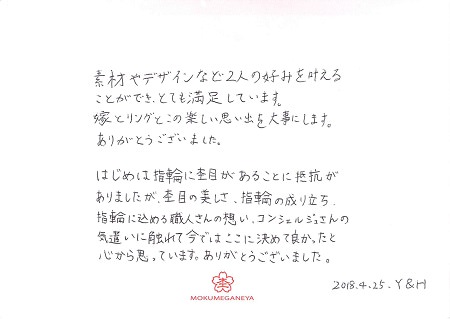 素材やデザインなど2人の好みを叶える
ことができ、とても満足しています。
嫁とリングとこの楽しい思い出を大事にします。
ありがとうございました。
はじめは指輪に杢目があることに抵抗が
ありましたが、杢目の美しさ、指輪の成り立ち、
指輪に込める職人さんの想い、コンシェルジュさんの
気遣いに触れて今ではここに決めて良かったと
心から思っています。ありがとうございました。
2018.4.25. Y&H
杢
MOKUMEGANEYA